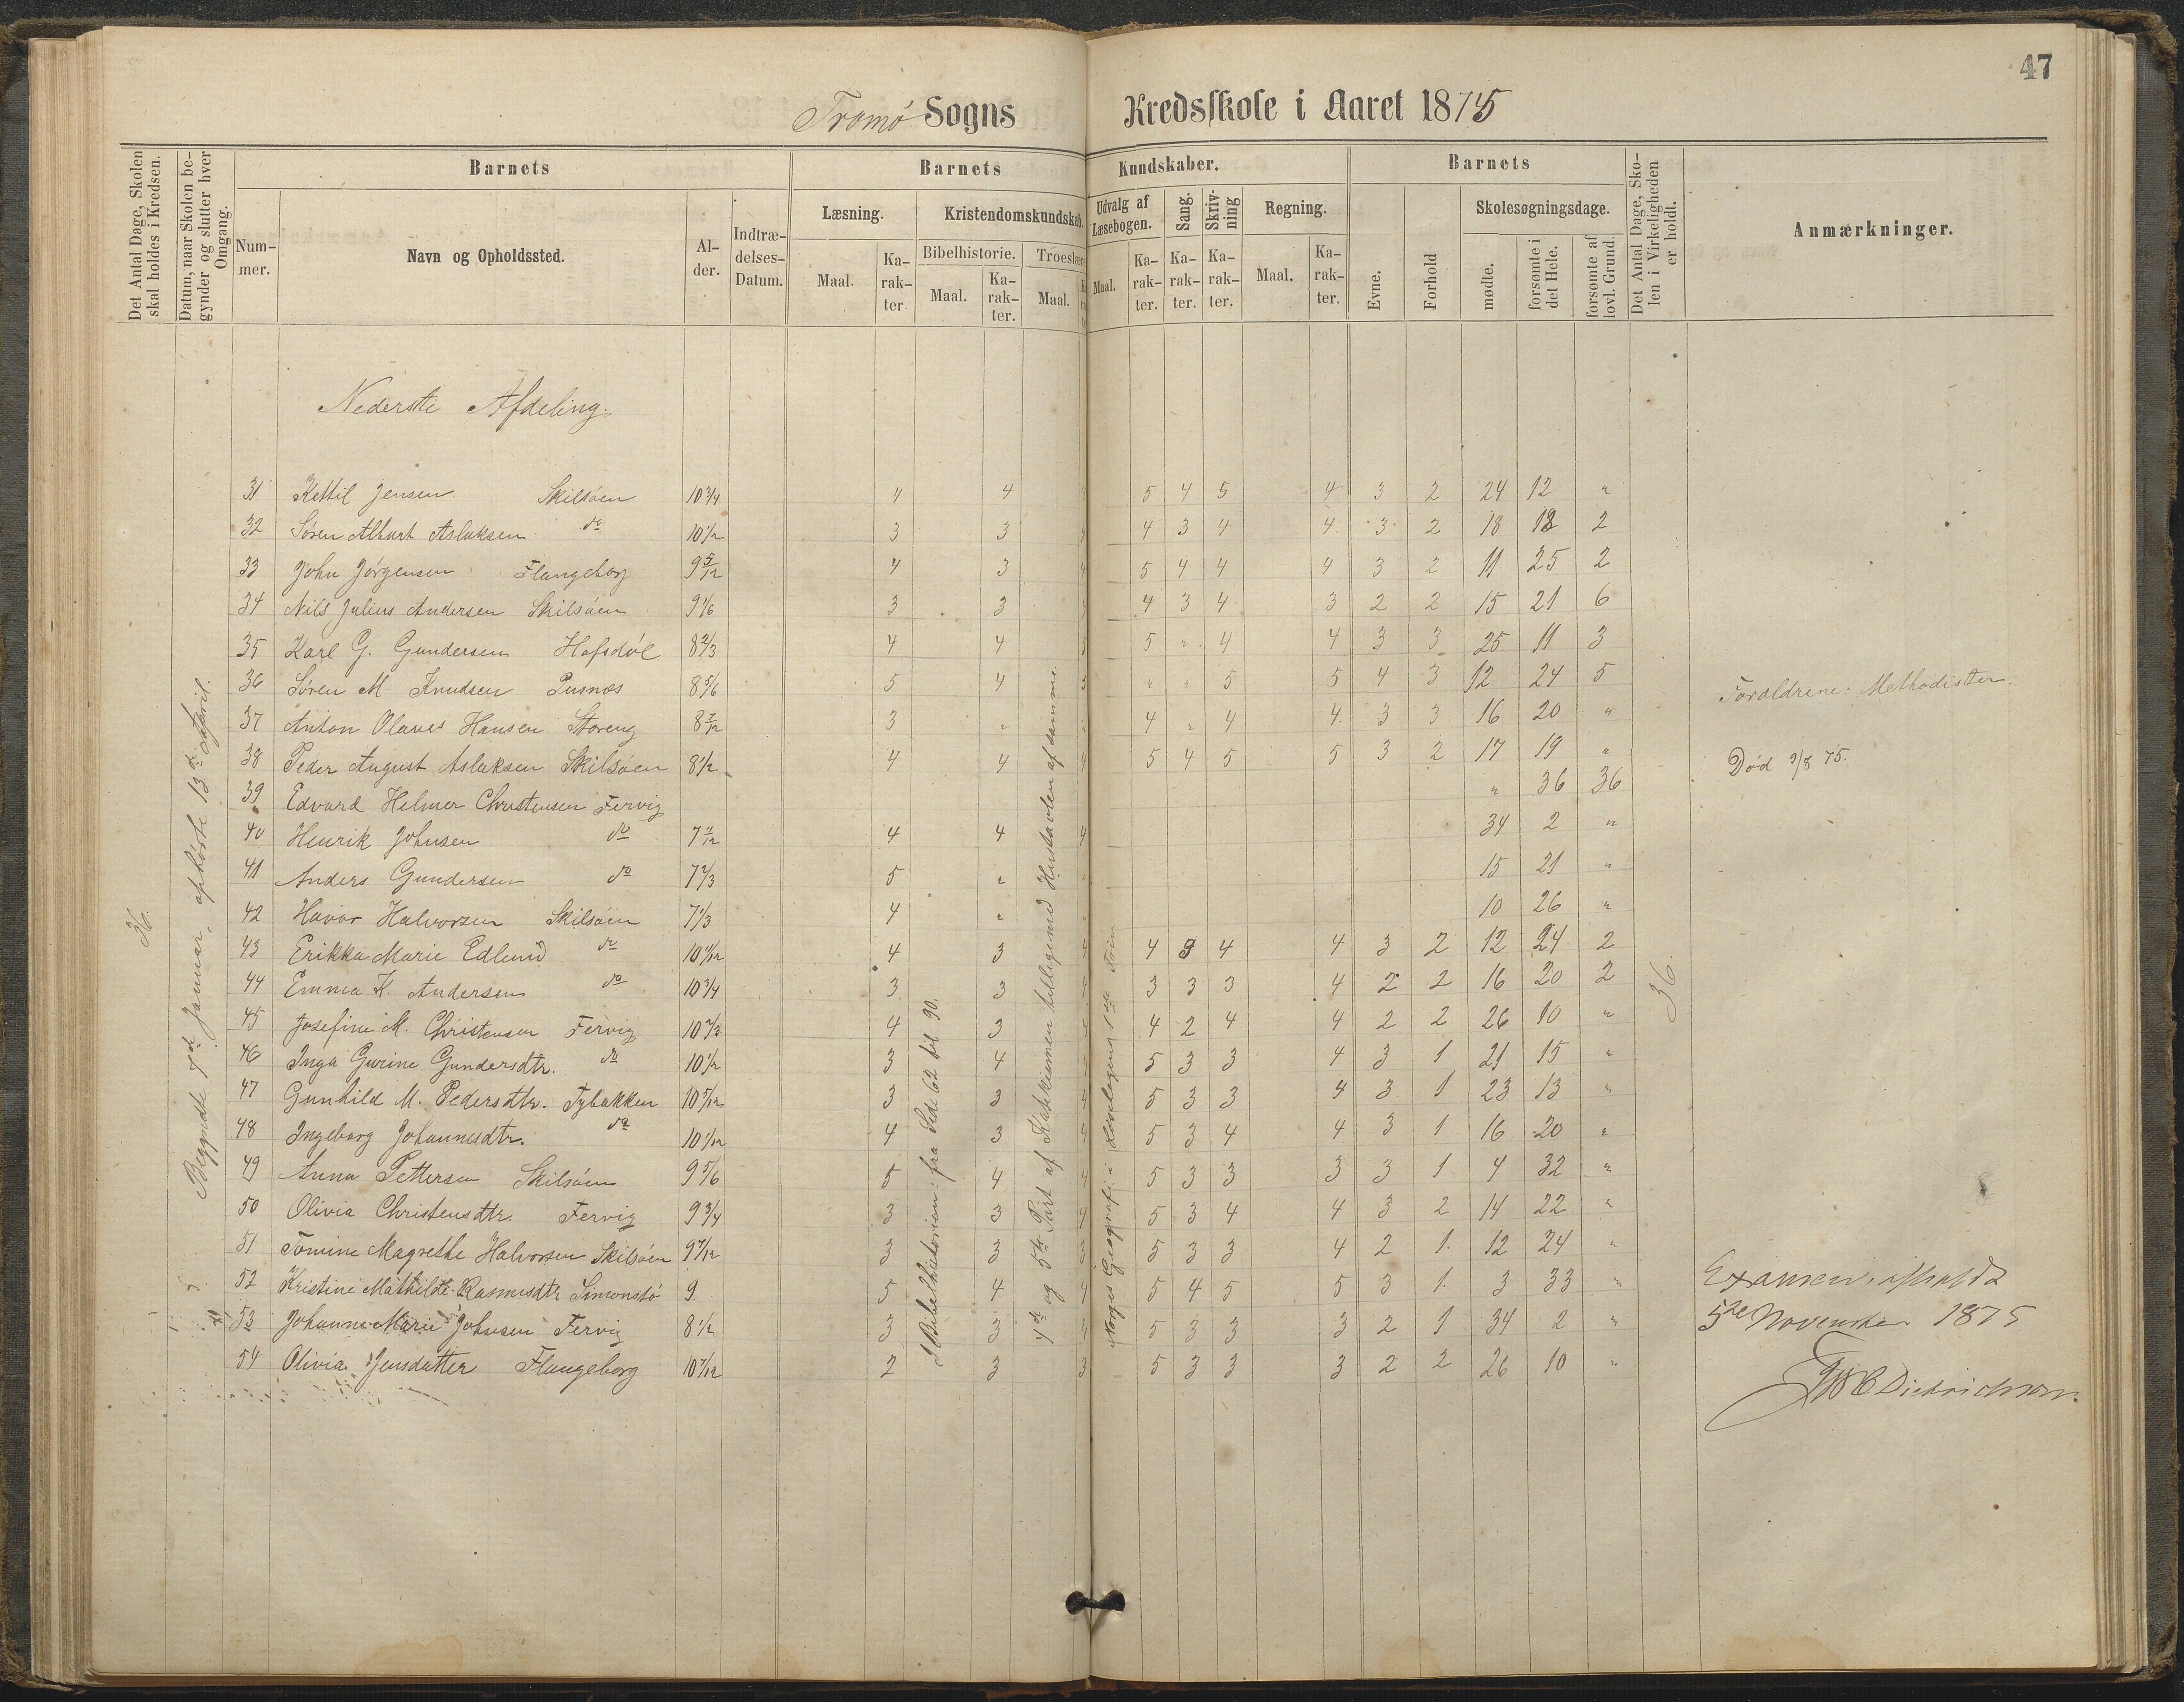 47
Tromø Sogns Kredsskole i Aaret 1875
Det Antal Dage, Skolen skal holdes i Kredsen.
Datum, naar Skolen begynder og slutter hver Omgang.
Barnets
Barnets Kundskaber.
Barnets
Det Antal Dage, Skolen i Virkeligheden er holdt.
Anmærkninger.
Nummer.
Navn og Opholdssted.
Alder.
Indtrædelses-Datum.
Læsning.
Kristendomskundskab.
Udvalg af Læsebogen.
Sang.
Skrivning
Regning.
Evne.
Forhold
Skolesøgningsdage.
Bibelhistorie.
Maal. Karakter.
mødte.
forsømte i det Hele.
forsømte af lovl. Grund.
Nederste Afdeling.
31 Kettil Jensen Skilsøen 10 3/4 4 4 5 4 5 4 3 2 24 12 "
32 Søren Albert Aslaksen do 10 1/2 3 3 4 4 3 4 4 3 2 18 18 2
33 John Jørgensen Flangeborg 9 5/12 4 3 4 5 4 4 4 3 2 11 25 2
34 Nils Julius Andersen Skilsøen 9 1/6 3 3 3 4 3 4 3 2 2 15 21 6
35 Karl G. Gundersen Hofsdøl 8 2/3 4 4 3 5 " 4 4 3 3 25 11 3
36 Søren M Knudsen Pusnæs 8 5/6 5 4 3 " " 5 5 4 3 12 24 5 Forældrene: Methodister.
37 Anton Olaves Hansen Storeng 8 7/12 3 " " 4 " 4 4 3 3 16 20 "
38 Peder August Aslaksen Skilsøen 8 1/2 4 4 4 5 4 5 5 3 2 17 19 " Død 9/8 75.
39 Edvard Helmer Christensen Fervig " 36 36
40 Henrik Johnsen do 7 11/12 4 4 4 34 2 "
41 Anders Gundersen do 7 2/3 5 " " 15 21 "
42 Havor Halvorsen Skilsøen 7 1/3 4 " " 10 26 "
43 Erikka Marie Edlund do 10 11/12 4 3 4 4 3 4 4 3 2 12 24 2
44 Emma K. Andersen do 10 3/4 3 3 4 3 3 3 4 2 2 16 20 2
45 Josefine M. Christensen Fervig 10 2/3 4 3 4 4 2 4 4 2 2 26 10 "
46 Inga Gurine Gundersdtr. do 10 1/2 3 4 4 5 3 3 4 3 1 21 15 "
47 Gunhild M. Pedersdtr. Tybakken 10 5/12 3 3 4 5 3 3 4 3 1 23 13 "
48 Ingeborg Johannesdtr. do 10 1/12 4 3 4 5 3 4 4 3 1 16 20 "
49 Anna Pettersen Skilsøen 9 5/6 5 4 4 5 3 3 3 3 1 4 32 "
50 Olivia Christensdtr. Fervig 9 3/4 3 3 4 5 3 4 4 3 2 14 22 "
51 Tomine Magrethe Halvorsen Skilsøen 9 7/12 3 3 3 5 3 3 4 2 1 12 24 "
52 Kristine Mathilde Rasmusdtr Simonstø 9 5 4 4 5 4 5 5 3 1 3 33 "
53 Johanne Marie Johnsen Fervig 8 1/2 3 3 4 5 3 3 3 2 1 34 2 "
54 Olivia Jensdatter Flangeborg 10 7/12 2 3 3 5 3 3 3 2 2 26 10 "
36.
Begyndte 7de Januar, ophørte 13de April.
I Bibelhistorien: fra Side 62 til 90.
4de og 5te Part af Katekismen tilligemed Hustavlen af samme.
Norges Geografi i Læsebogens 1ste Trin
36.
Examen afholdt
5te November 1875
Diedrichsen.